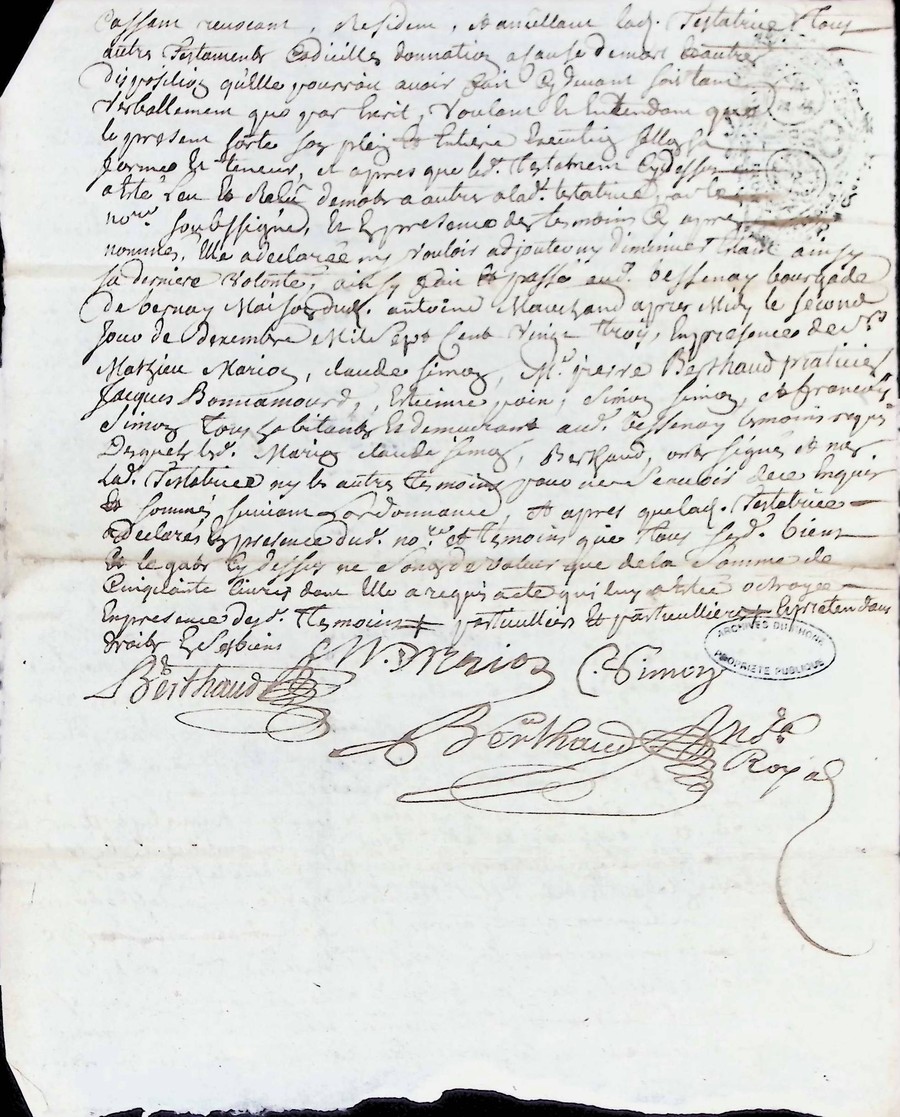 Cassant revocant, Resident, et anéllant lad. Testatrice tous
autres Testaments Codicilles donnation a cause de mort et autre
disposition qu'elle pourroit avoir fait cydevant soit tant
verballement que par Ecrit, voulant et Entendant que
le present sorte son plein et Entiere Execution sellon sa
forme et teneur, et apres que led. Testament cydessus
a été Leu et Relu de mot a autre a lad. testatrice, par le
nore. soubssigné, et En presence des temoins cy apres
nommés, Elle a declaré ny vouloir adjouter ny diminuer Etant ainsy
sa derniere volonté, ainsy fait et passé aud. Bessenay bourgade
de bernay Maison dud. antoine Marchand apres Midy le second
Jour de Decembre Mil Sept Cent Vingt trois, En presence de Srs
Mathieu Marion, claude Simon, Me. pierre Berthaud praticien
Jacques Bonnamourd, Etienne poin, Simon Simon, et francois
Simon tous habitants et demeurant aud. Bessenay temoins requis
Desquels led. Marion claude Simon, Berthaud, onts signés et non
lad. Testatrice ny les autres temoins pour ne scavoir de ce enquis
et sommés suivant Lordonnance, et apres que lad. Testatrice
a declaré En presence dud. nore. et temoins que tous sesd. biens
et legats cy dessus ne sont de valeur que de la somme de
Cinquante livres dont Elle a requis acte qui luy a été octroyé
En presence desd. temoins + particulliers et particulliers + Et pretendans
droits Et Ses biens
Berthaud M. Marion C. Simon
Berthaud Nore
Royal
ARCHIVES DU RHONE
PROPRIETE PUBLIQUE